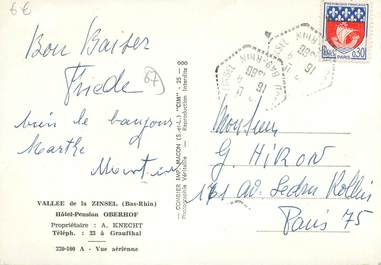 6€
Bon Baiser
Friede
67
bien le bonjour
Marthe
Martin
VALLEE de la ZINSEL (Bas-Rhin)
Hôtel-Pension OBERHOF
Propriétaire : A. KNECHT
Téléph. : 23 à Graufthal
220-100 A - Vue aérienne
COMBIER IMP. MACON (S.-et-L.) "CIM" - 25 - 000
Photographie Véritable - Reproduction Interdite
REPUBLIQUE FRANÇAISE
0,30
PARIS
BAS-RHIN
Monsieur
G. HIRON
161 av. Ledru Rollin
Paris 75